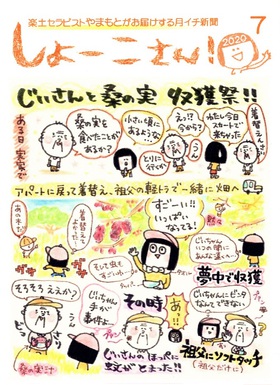 楽土セラピストやまもとがお届けする月イチ新聞
しょーこさん!
2020
7
じいさんと桑の実 収穫祭!!
ある日 実家で
桑の実を
食べたことが
あるか?
小さい頃に
あるような…
とりに
行くか
えっ!?
今から?
うん
わたし今日
スカートで
来ちゃった
着替えん
アパートに戻って着替え、祖父の軽トラで一緒に畑へ
あの木だ
すごーい!!
いっぱい
なってる!
夢中で収穫
そろそろええか?
その時
あ!!
じいさんのほっぺに
蚊がとまった!!
じいちゃんにビンタ
なんてできない
祖父にソフトタッチ
(祖父だけに)